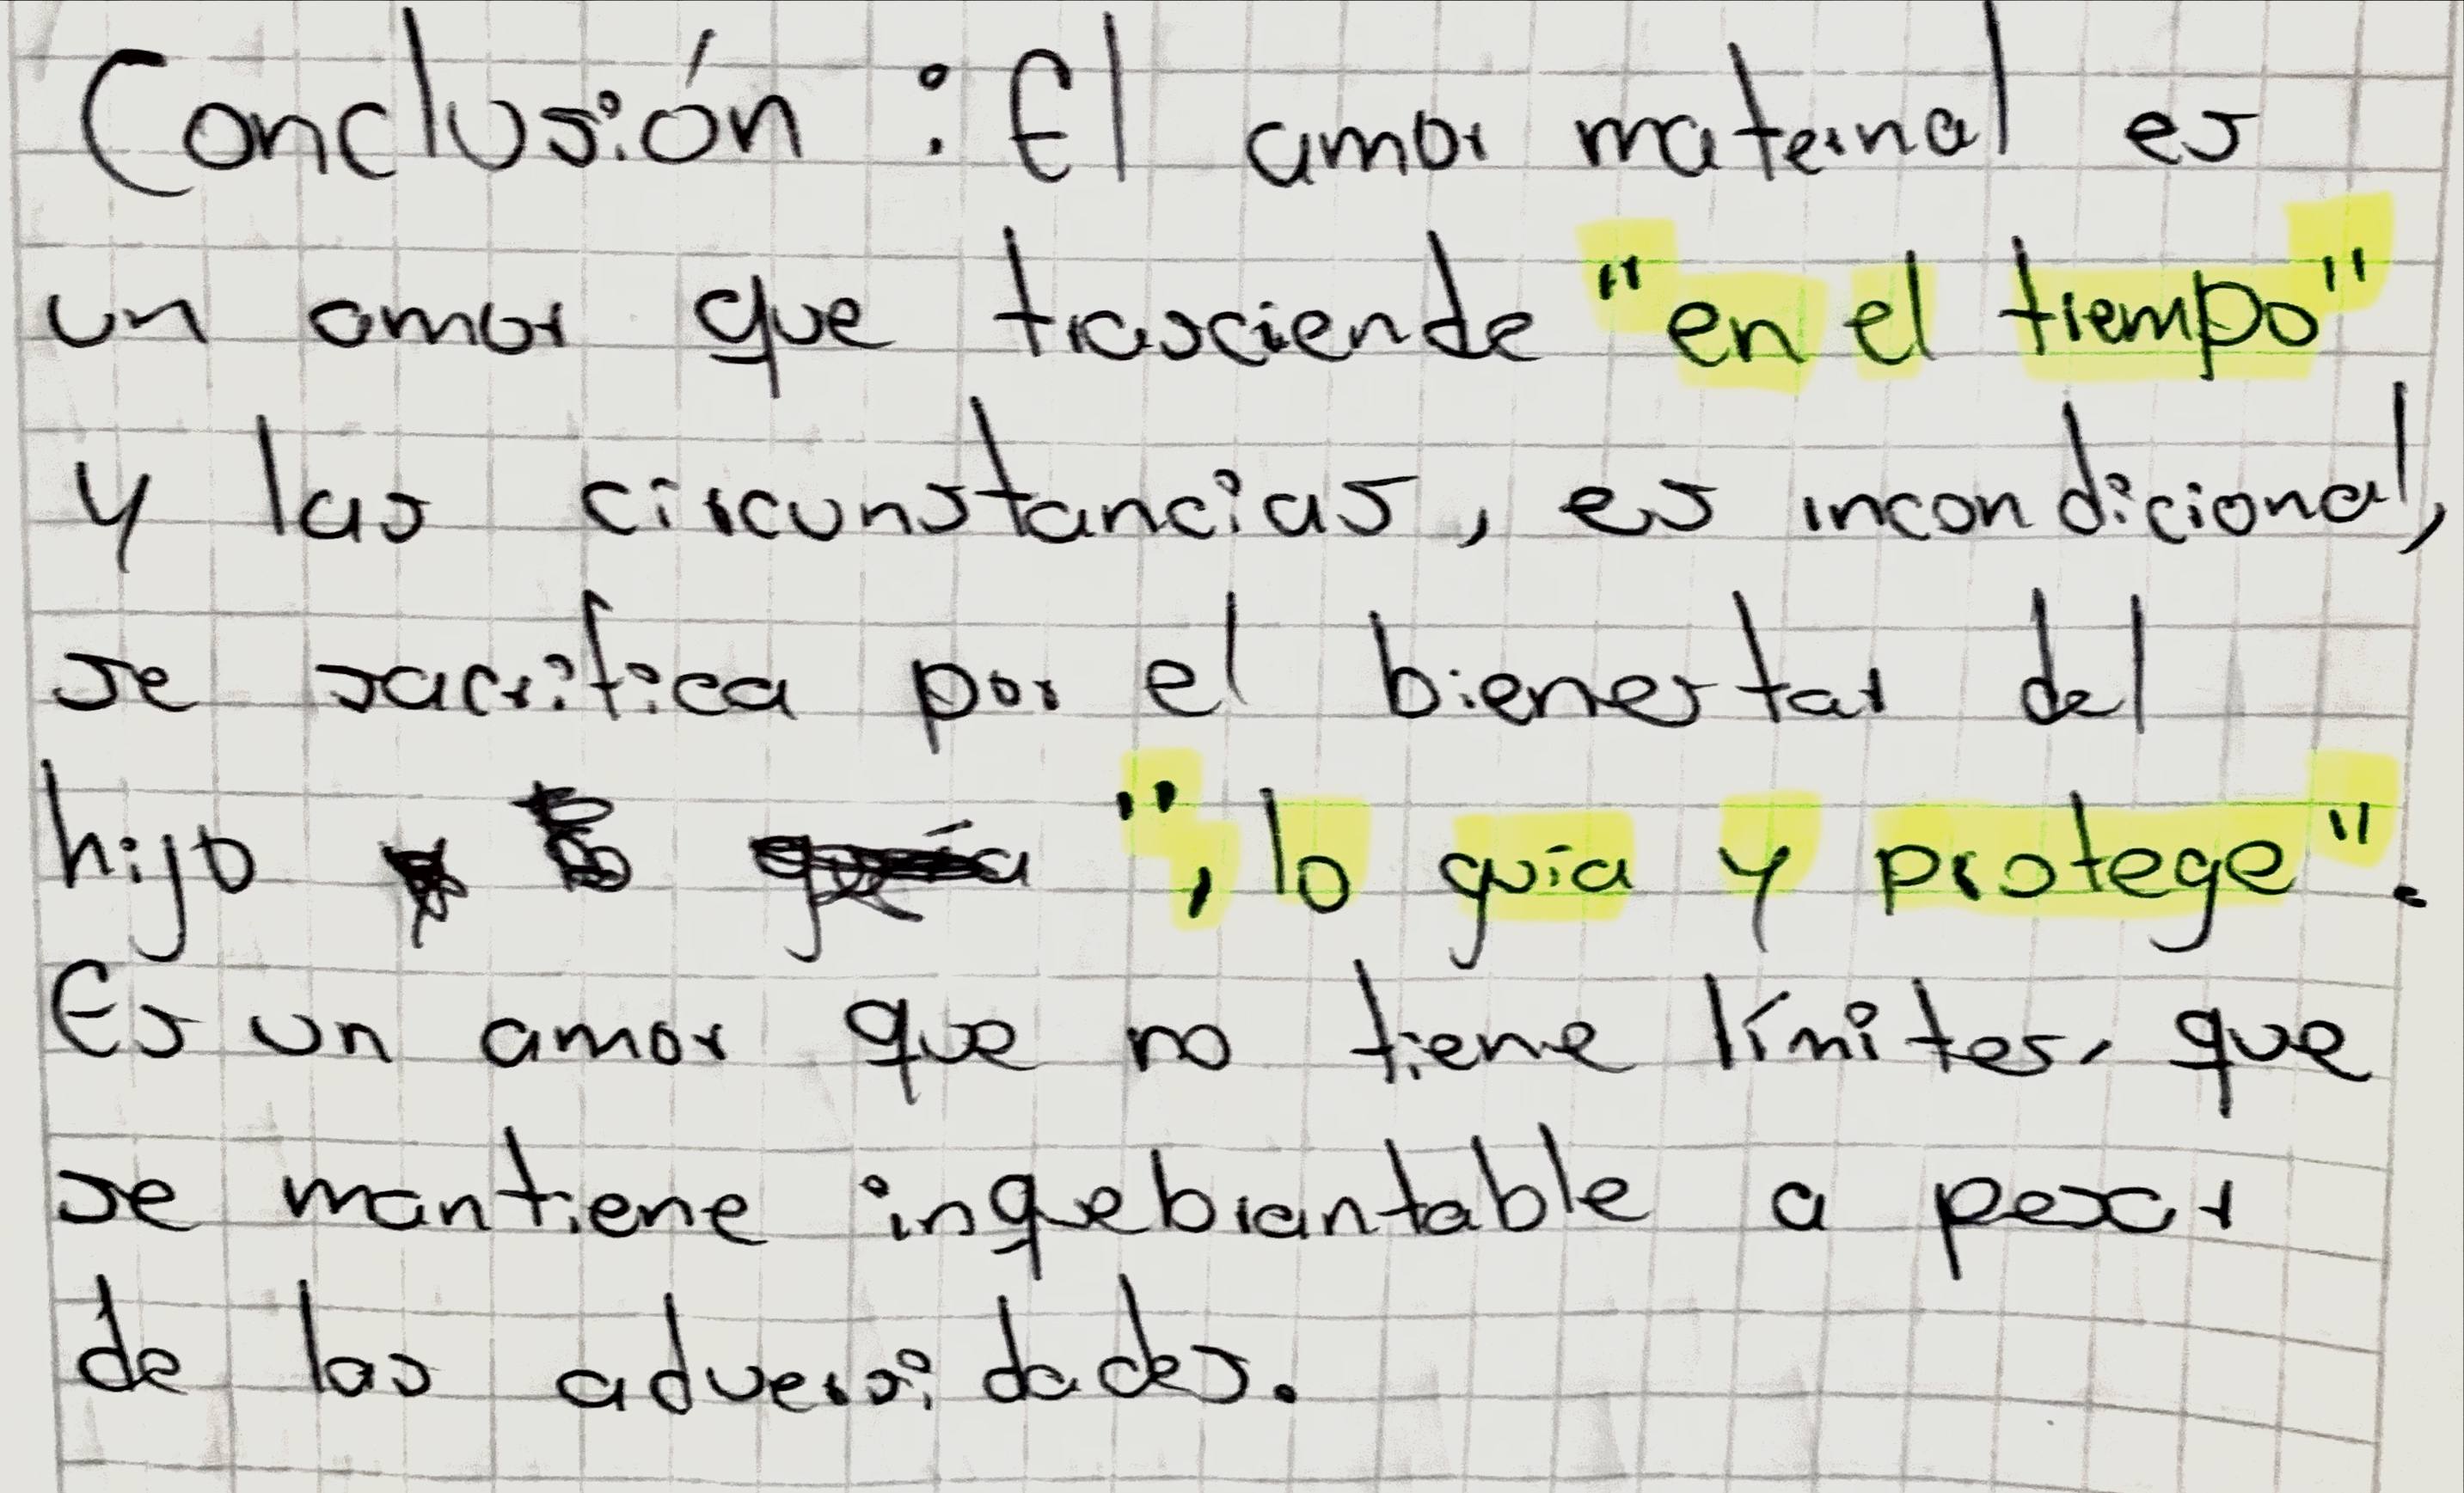 Conclusión : El amor maternal es
un amor que trasciende "en el tiempo"
y las circunstancias, es incondicional,
se sacrifica por el bienestar del
hijo ", lo guía y protege".
Es un amor que no tiene límites, que
se mantiene inquebrantable a pesar
de las adversidades.